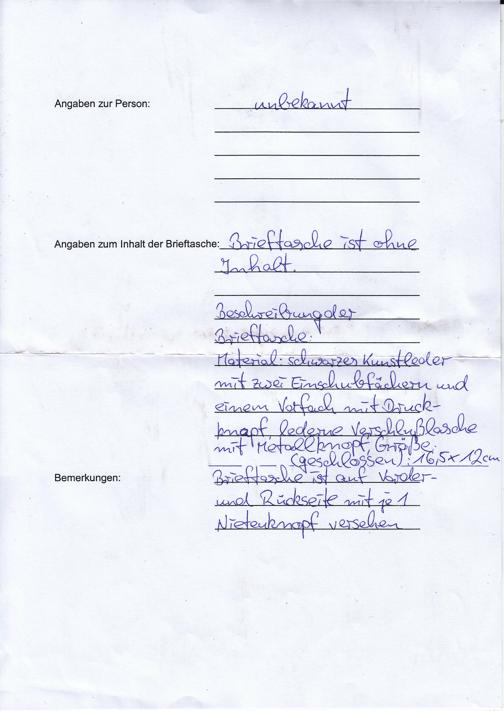 Angaben zur Person: unbekannt
Angaben zum Inhalt der Brieftasche: Brieftasche ist ohne
Inhalt.
Beschreibung der
Brieftasche:
Material: schwarzer Kunstleder
mit zwei Einschubfächern und
einem Vorfach mit Druck-
knopf, lederne Verschlußlasche
mit Metallknopf, Größe:
(geschlossen): 16,5 x 12 cm
Bemerkungen: Brieftasche ist auf Vorder-
und Rückseite mit je 1
Nietenknopf versehen